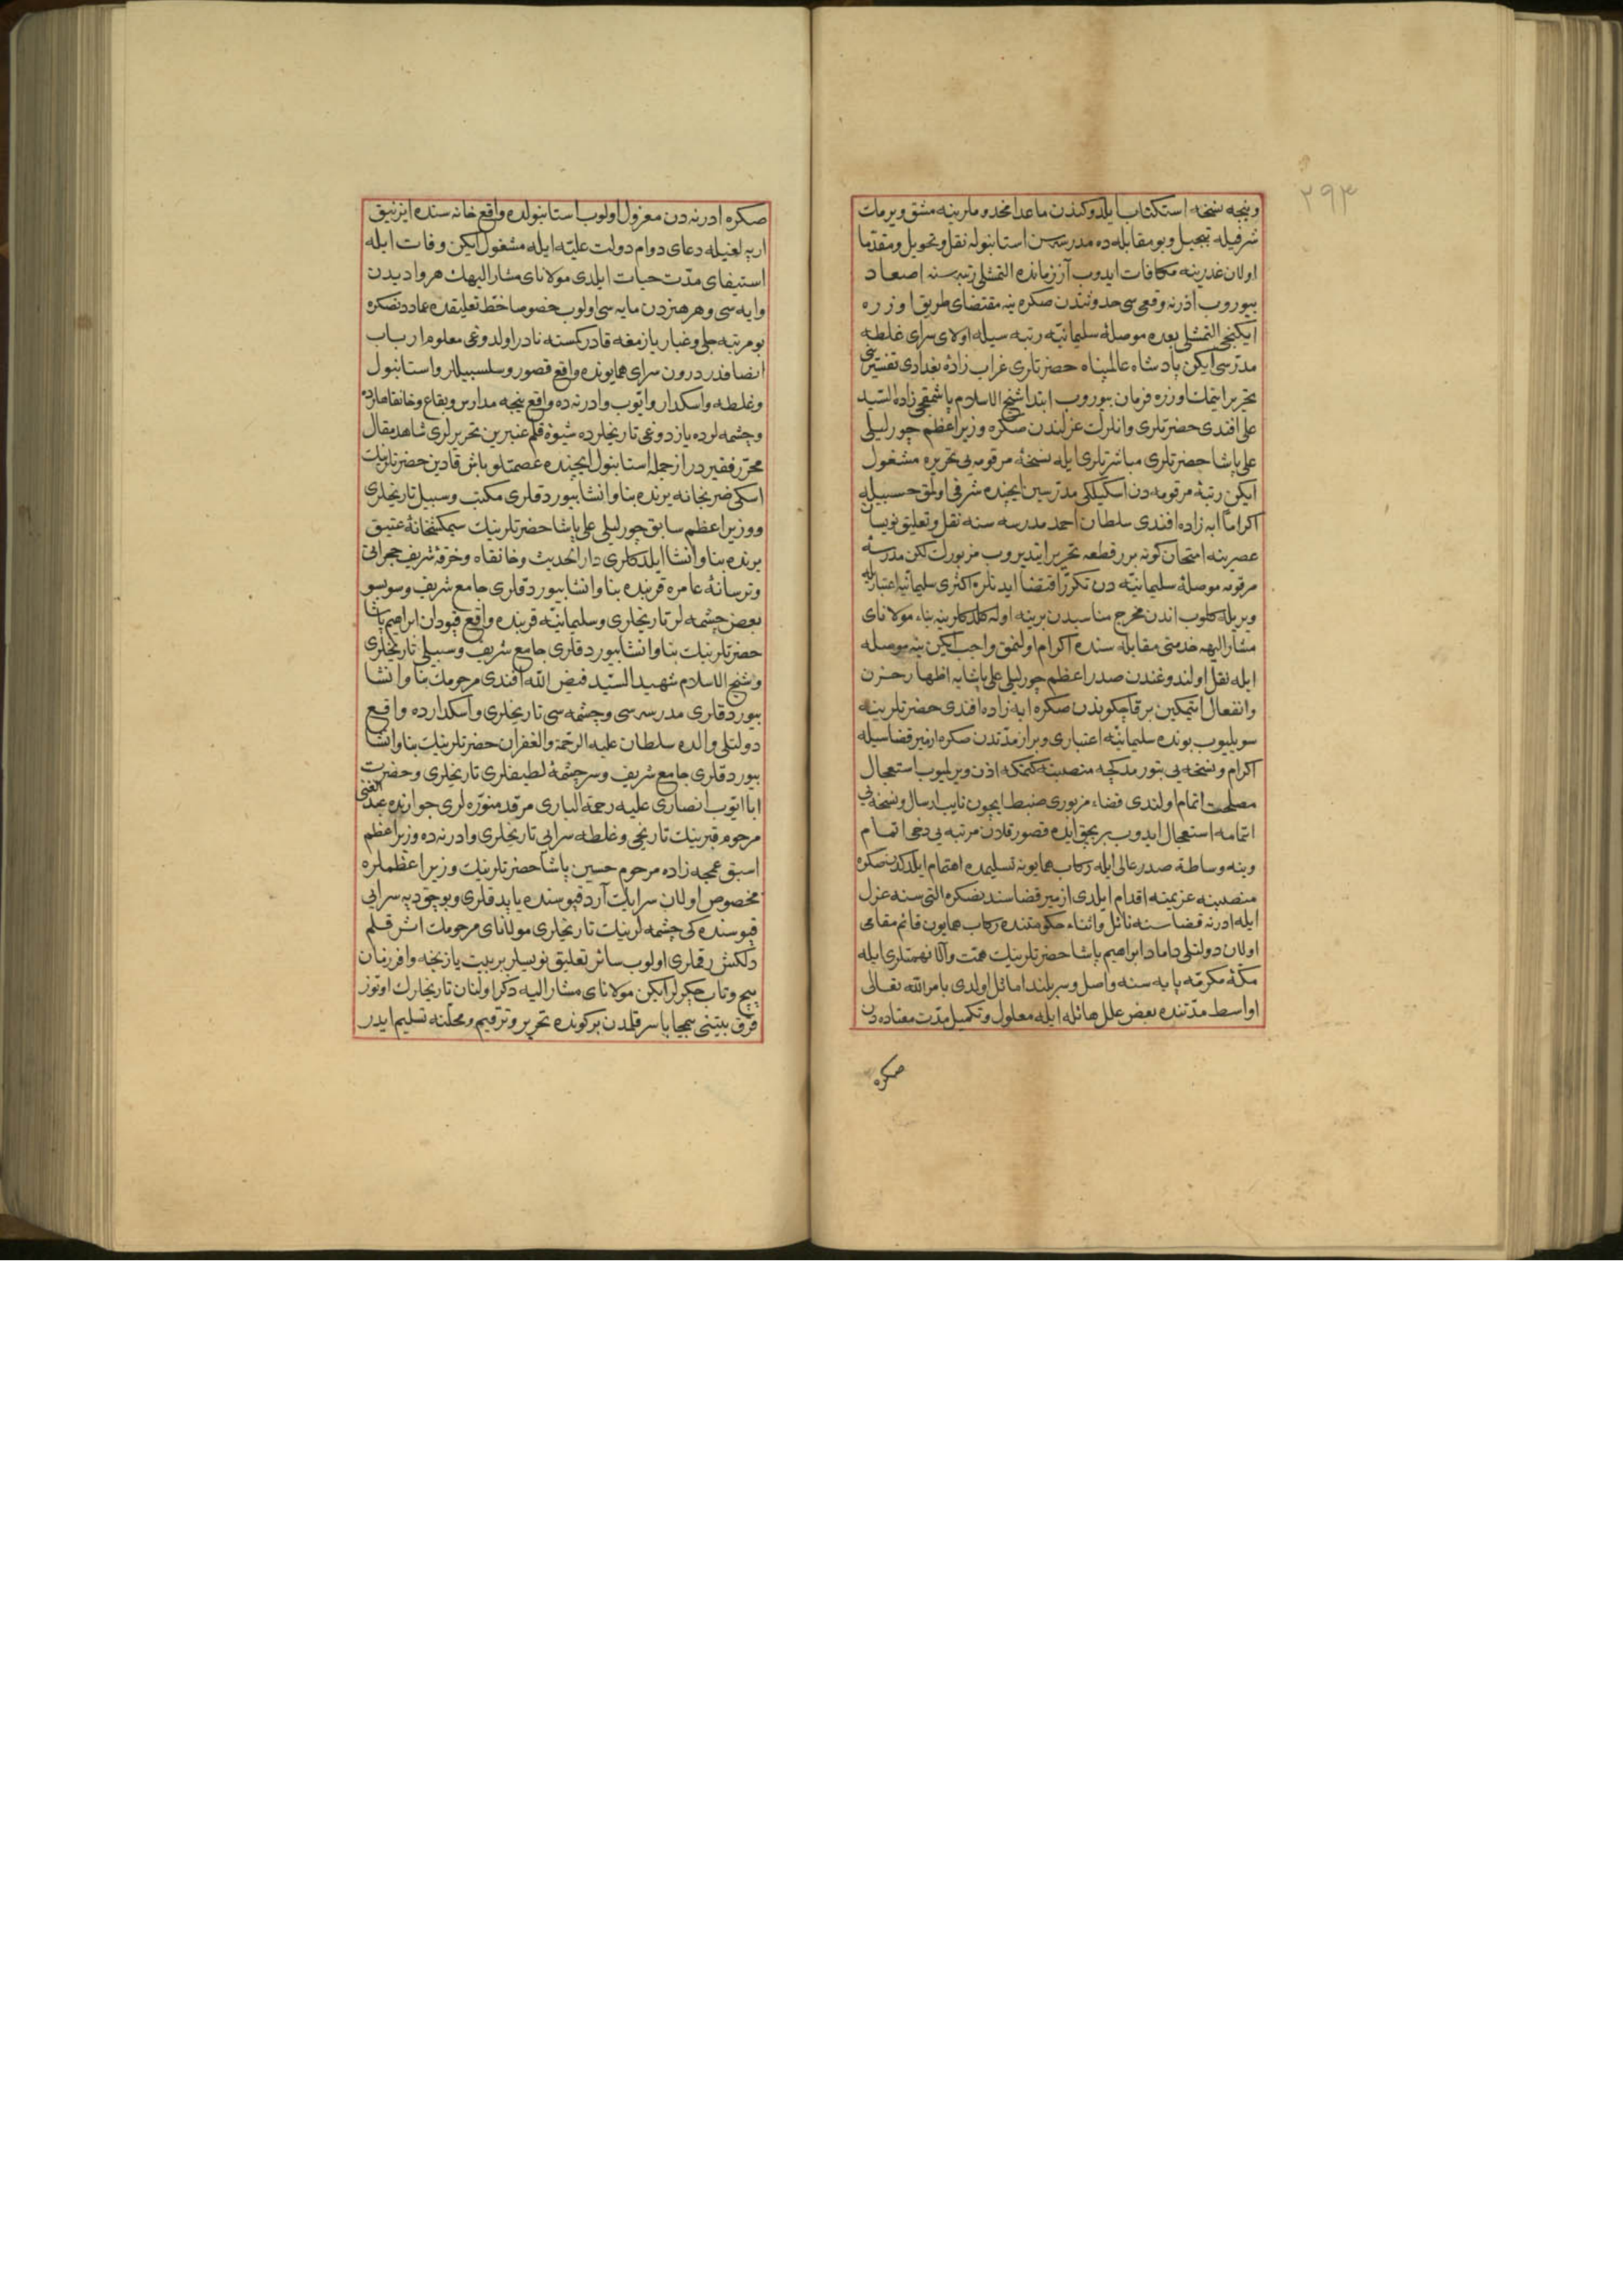 ٢٩٣
ونیجه نسخه استکتاب ایلدوکندن ماعدا مخدوملرینه مشق ویرمك
شرفیله تبجیل وبو مقابله ده مدرسه سن استانبوله نقل وتحویل ومقدما
اولان غدرینه مکافات ایدوب آز زمانده التمشلی رتبه سنه اصعاد
بیوروب ادرنه وقعه سی حدوثندن صکره ینه مقتضای طریق اوزره
ایکنجی التمشلی بعده موصلهٔ سلیمانیه رتبه سیله اولای سرای غلطه
مدرسی ایکن پادشاه عالمپناه حضرتلری غراب زاده بغدادی تفسیرینی
تحریر ایتمك اوزره فرمان بیوروب ابتدا شیخ الاسلام پاشمقجی زاده السید
علی افندی حضرتلری وانلرك عزلندن صکره وزیر اعظم چورلیلی
علی پاشا حضرتلری مباشرتلری ایله نسخهٔ مرقومه یی تحریره مشغول
ایکن رتبهٔ مرقومه دن اسکیلکی مدرسین ایچنده شرفی اولمق حسبیله
اکراماً ابه زاده افندی سلطان احمد مدرسه سنه نقل وتعلیق نویسان
عصرینه امتحان کونه برر قطعه تحریر ایتدیروب مزبورك لکن مدرسهٔ
مرقومه موصلهٔ سلیمانیه دن تکرر اقتضا ایدنلره اکثری سلیمانیه اعتباریله
ویریله کلوب اندن مخرج مناسبدن برینه اوله کلدکلرینه بناء مولانای
مشار الیهه خدمتی مقابله سنده اکرام اولنمق واجب ایکن ینه موصله
ایله نقل اولندوغندن صدر اعظم چورلیلی علی پاشایه اظهار حزن
وانفعال ایتمکین برقاچ کوندن صکره ابه زاده افندی حضرتلرینه
سویلیوب بونده سلیمانیه اعتباری وبر از مدتدن صکره ازمیر قضاسیله
اکرام ونسخه یی بتورمدکجه منصبنه کتمکه اذن ویرلمیوب استعجال
مصلحت اتمام اولندی قضاء مزبوری ضبط ایچون نایب ارسال ونسخه یی
اتمامه استعجال ایدوب بر بچق ایده قصور قلان مرتبه یی دخی اتمام
وینه وساطهٔ صدر عالی ایله رکاب همایونه تسلیمده اهتمام ایلدکدنصکره
منصبنه عزیمته اقدام ایلدی ازمیر قضاسندنصکره التی سنه عزل
ایله ادرنه قضاسنه نائل واثناء حکومتنده رکاب همایون قائم مقامی
اولان دولتلی داماد ابراهیم پاشا حضرتلرینك همت والانهمتلری ایله
مکهٔ مکرمه پایه سنه واصل وسربلند اماثل اولدی بامر الله تعالی
اواسط مدتنده بعض علل هائله ایله معلول وتکمیل مدت معتاده دن
صکره
صکره ادرنه دن معزول اولوب استانبولده واقع خانه سنده ایزنیق
ارپه لغیله دعای دوام دولت علیه ایله مشغول ایکن وفات ایله
استیفای مدت حیات ایلدی مولانای مشار الیهك هر وادیدن
وایه سی وهر هنردن مایه سی اولوب خصوصا خط تعلیقده عماددنصکره
بو مرتبه جلی وغبار یازمغه قادر کمسنه نادر اولدوغی معلوم ارباب
انصافدر درون سرای همایونده واقع قصور وسلسبیللر واستانبول
وغلطه واسکدار وایوب وادرنه ده واقع نیجه مدارس وبقاع وخانقاهلرده
وچشمه لرده یازدوغی تاریخلرده شیوهٔ قلم عنبرین تحریرلری شاهد مقال
محرر فقیردر از جمله استانبول ایچنده عصمتلو باش قادین حضرتلرینك
اسکی ضربخانه یرنده بنا وانشا بیوردقلری مکتب وسبیل تاریخلری
ووزیر اعظم سابق چورلیلی علی پاشا حضرتلرینك سیمکشخانهٔ عتیق
یرنده بنا وانشا ایلدکلری دار الحدیث وخانقاه وخرقهٔ شریف حجراتی
وترسانهٔ عامره قربنده بنا وانشا بیوردقلری جامع شریف وسوبسو
بعض چشمه لر تاریخلری وسلیمانیه قربنده واقع قپودان ابراهیم پاشا
حضرتلرینك بنا وانشا بیوردقلری جامع شریف وسبیلی تاریخلری
وشیخ الاسلام شهید السید فیض الله افندی مرحومك بنا وانشا
بیوردقلری مدرسه سی وچشمه سی تاریخلری واسکدارده واقع
دولتلی والده سلطان علیه الرحمة والغفران حضرتلرینك بنا وانشا
بیوردقلری جامع شریف وسر چشمهٔ لطیفلری تاریخلری وحضرت
ابا ایوب انصاری علیه رحمة الباری مرقد منوره لری جوارنده عبد الغنی
مرحوم قبرینك تاریخی وغلطه سرایی تاریخلری وادرنه ده وزیر اعظم
اسبق عمجه زاده مرحوم حسین پاشا حضرتلرینك وزیر اعظملره
مخصوص اولان سرایك آرد قپوسنده یاپدقلری وبوجق دپه سرایی
قپوسنده کی چشمه لرینك تاریخلری مولانای مرحومك اثر قلم
دلکش رقملری اولوب سائر تعلیق نویسلر بر بیت یازنجه وافر زمان
پیچ وتاب چکرلر ایکن مولانای مشار الیه ذکر اولنان تاریخلرك اوتوز
قرق بیتنی بیمحابا سر قلمدن بر کونده تحریر وترقیم ومحلنه تسلیم ایدر